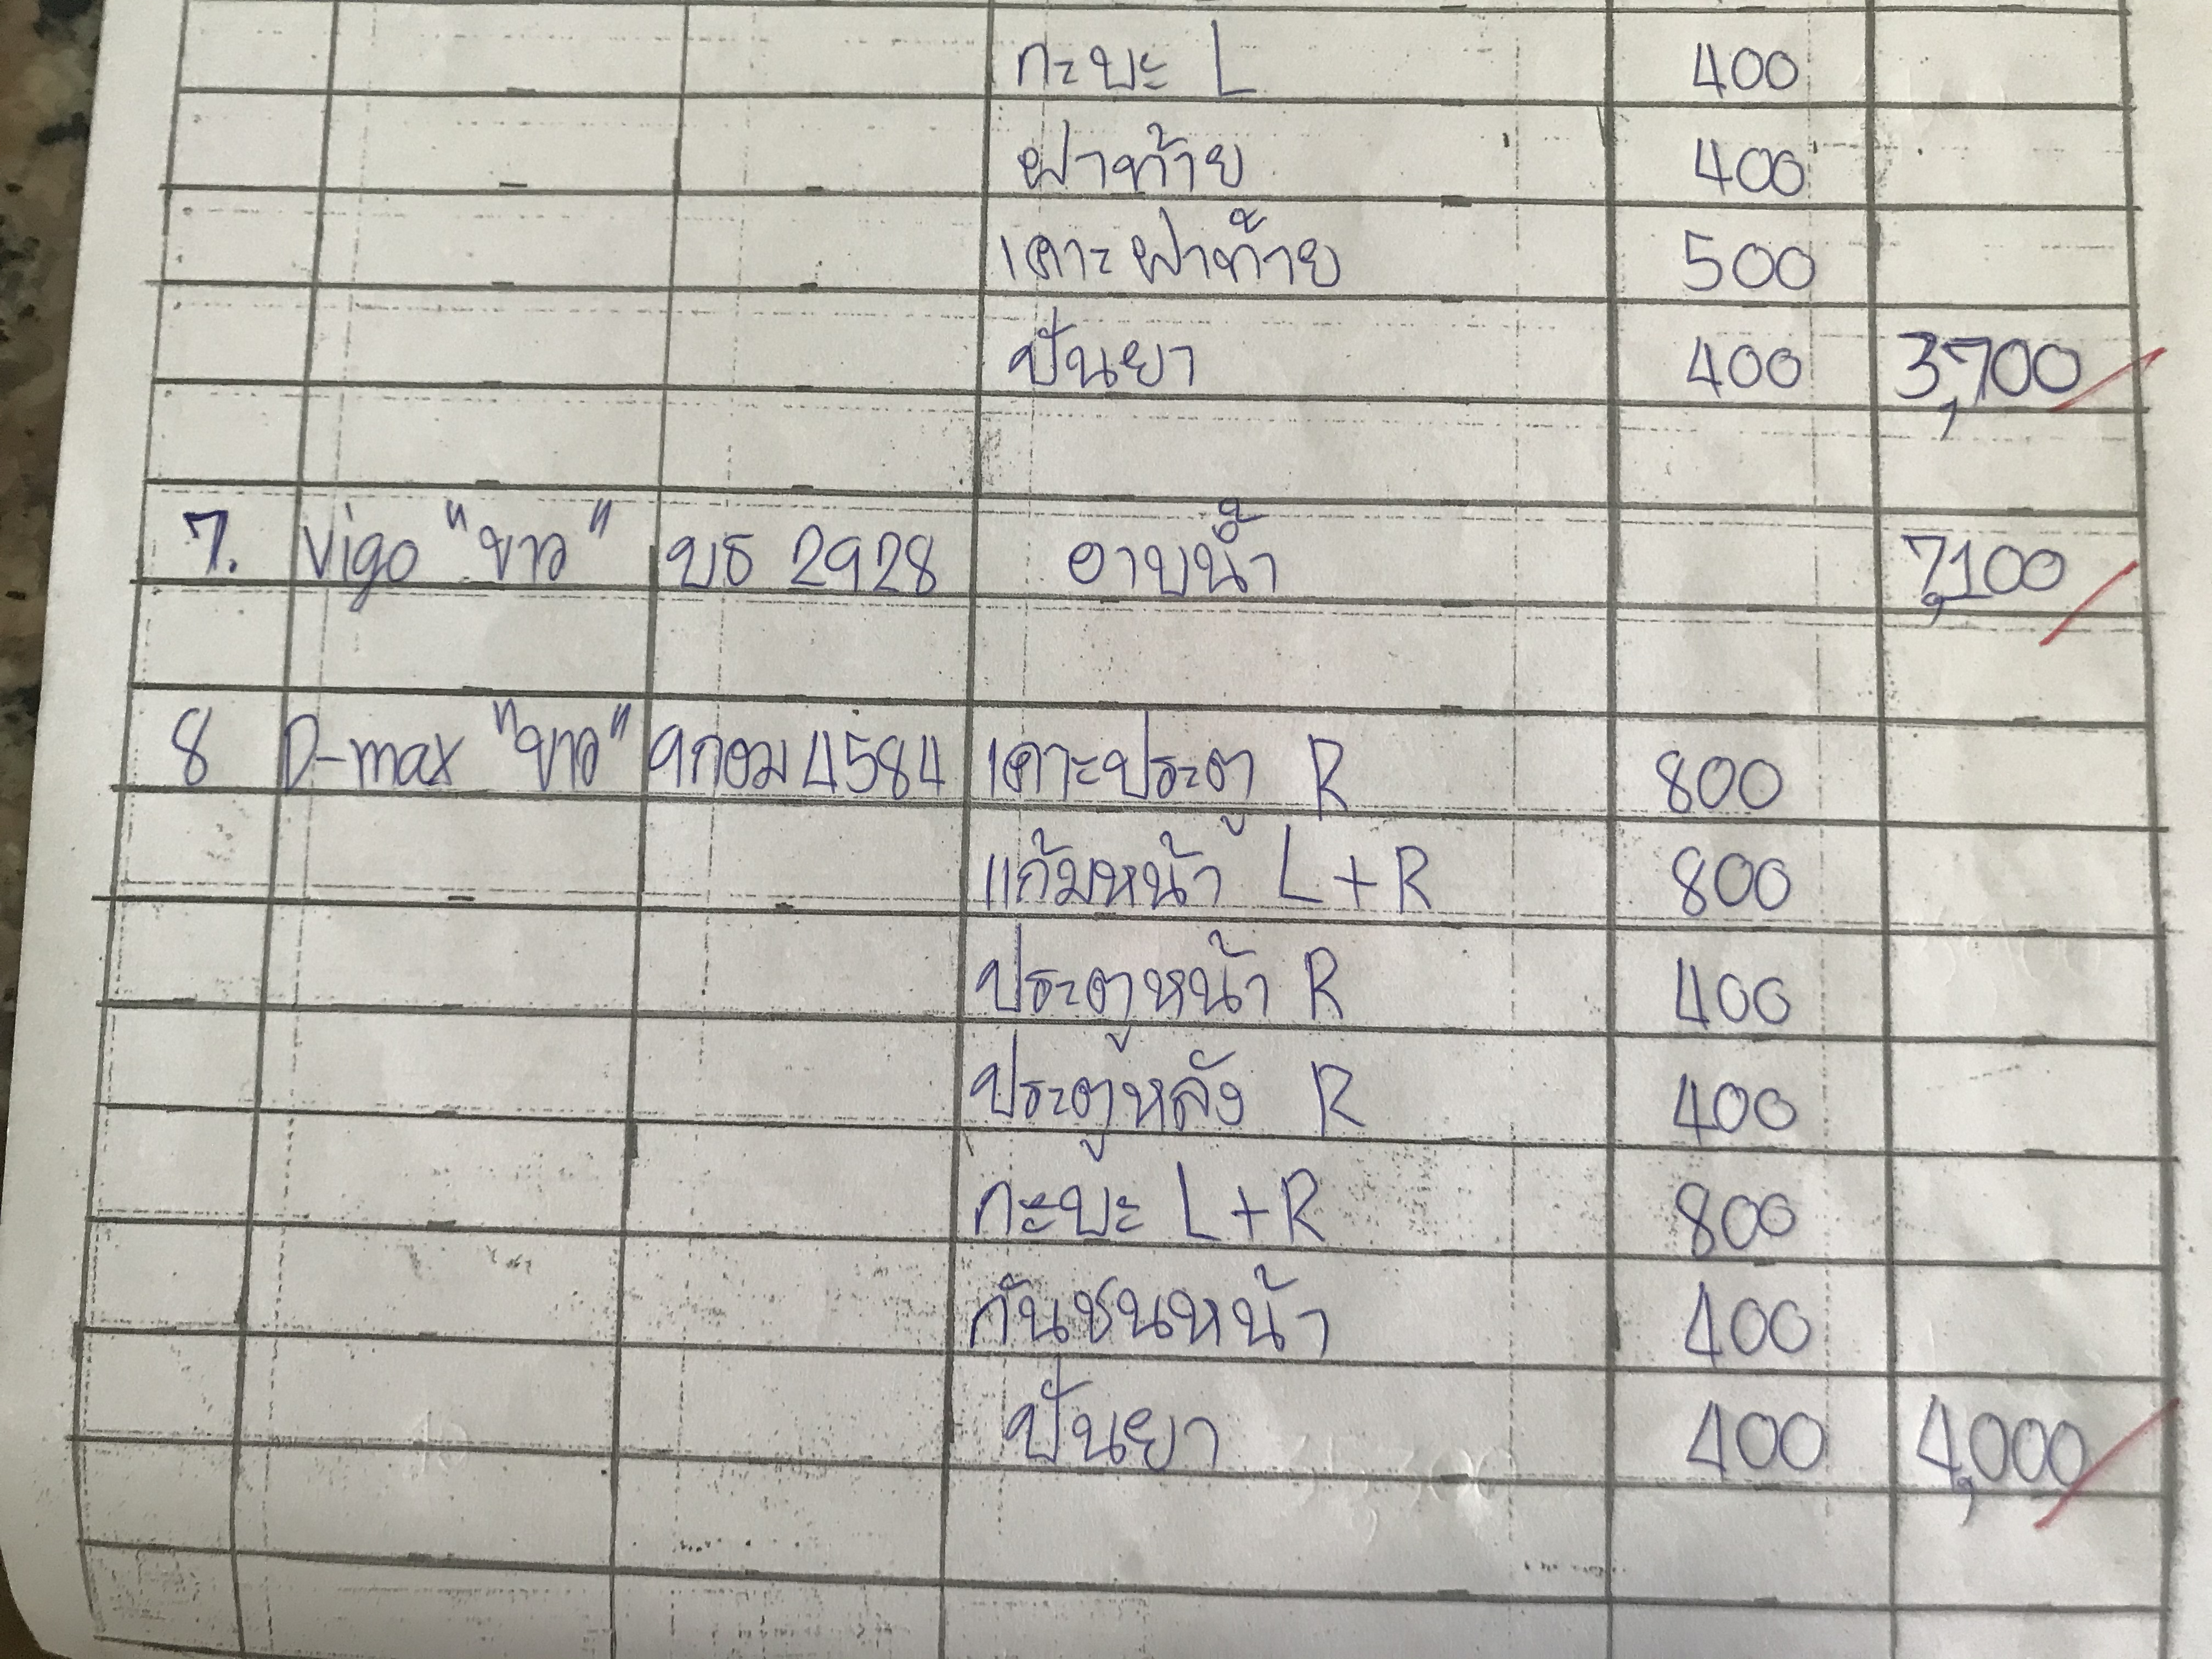 กะบะ L 400
ฝาท้าย 400
เคาะฝาท้าย 500
ปั่นยา 400 3,700
7. Vigo "ขาว" บธ 2928 อาบน้ำ 7,100
8 D-max "ขาว" 9กอม 4584 เคาะประตู R 800
แก้มหน้า L+R 800
ประตูหน้า R 400
ประตูหลัง R 400
กะบะ L+R 800
กันชนหน้า 400
ปั่นยา 400 4,000